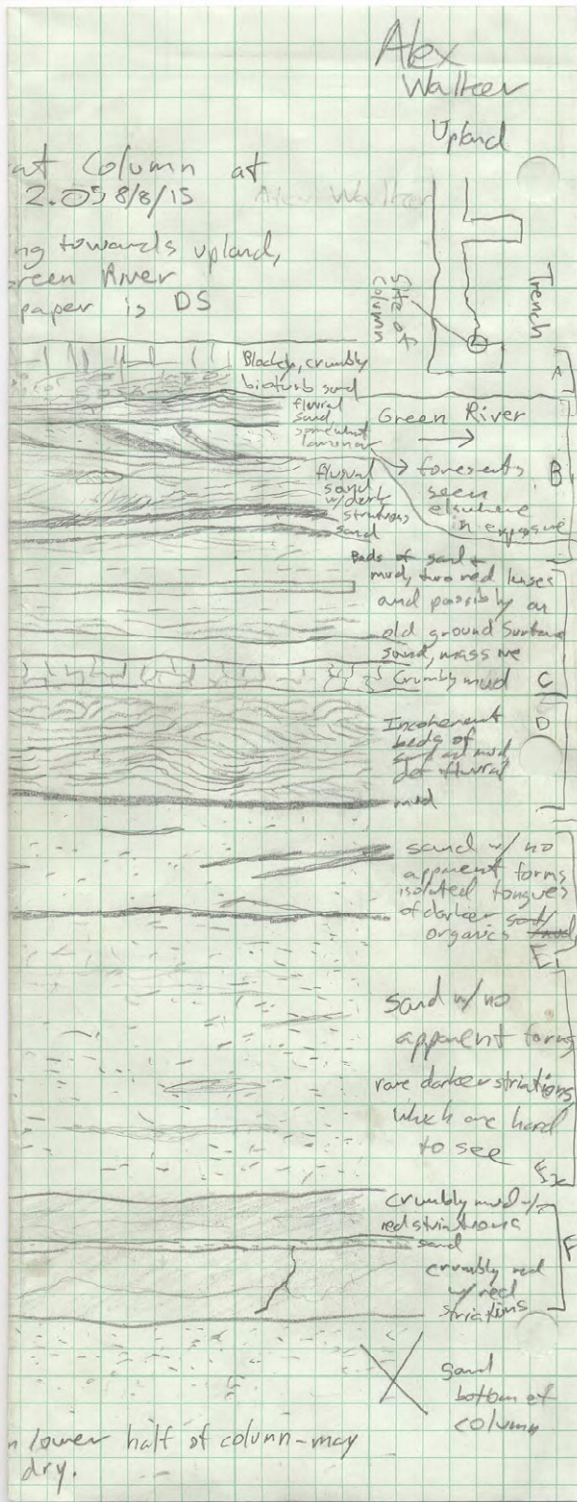 Alex
Walker
Upland
at Column at
2.05 8/8/15
Alex Walker
ng towards upland,
reen River
paper is DS
Site of
Column
Trench
Blocky, crumbly
bioturb sand
A
fluvial
sand,
somewhat
laminar
Green River
fluvial
sand
w/ dark
striations
sand
foresets
seen
elsewhere
in exposure
B
Beds of sand +
mud, two red lenses
and possibly an
old ground surface
sand, massive
Crumbly mud
C
Incoherent
beds of
sand and mud,
fluvial
D
mud
sand w/ no
apparent forms
isolated tongues
of darker
organics
E1
sand w/ no
apparent forms
rare darker striations,
which are hard
to see
crumbly mud w/
red striations
sand
crumbly red
w/ red
striations
F
sand
bottom of
column
n lower half of column-may
dry.